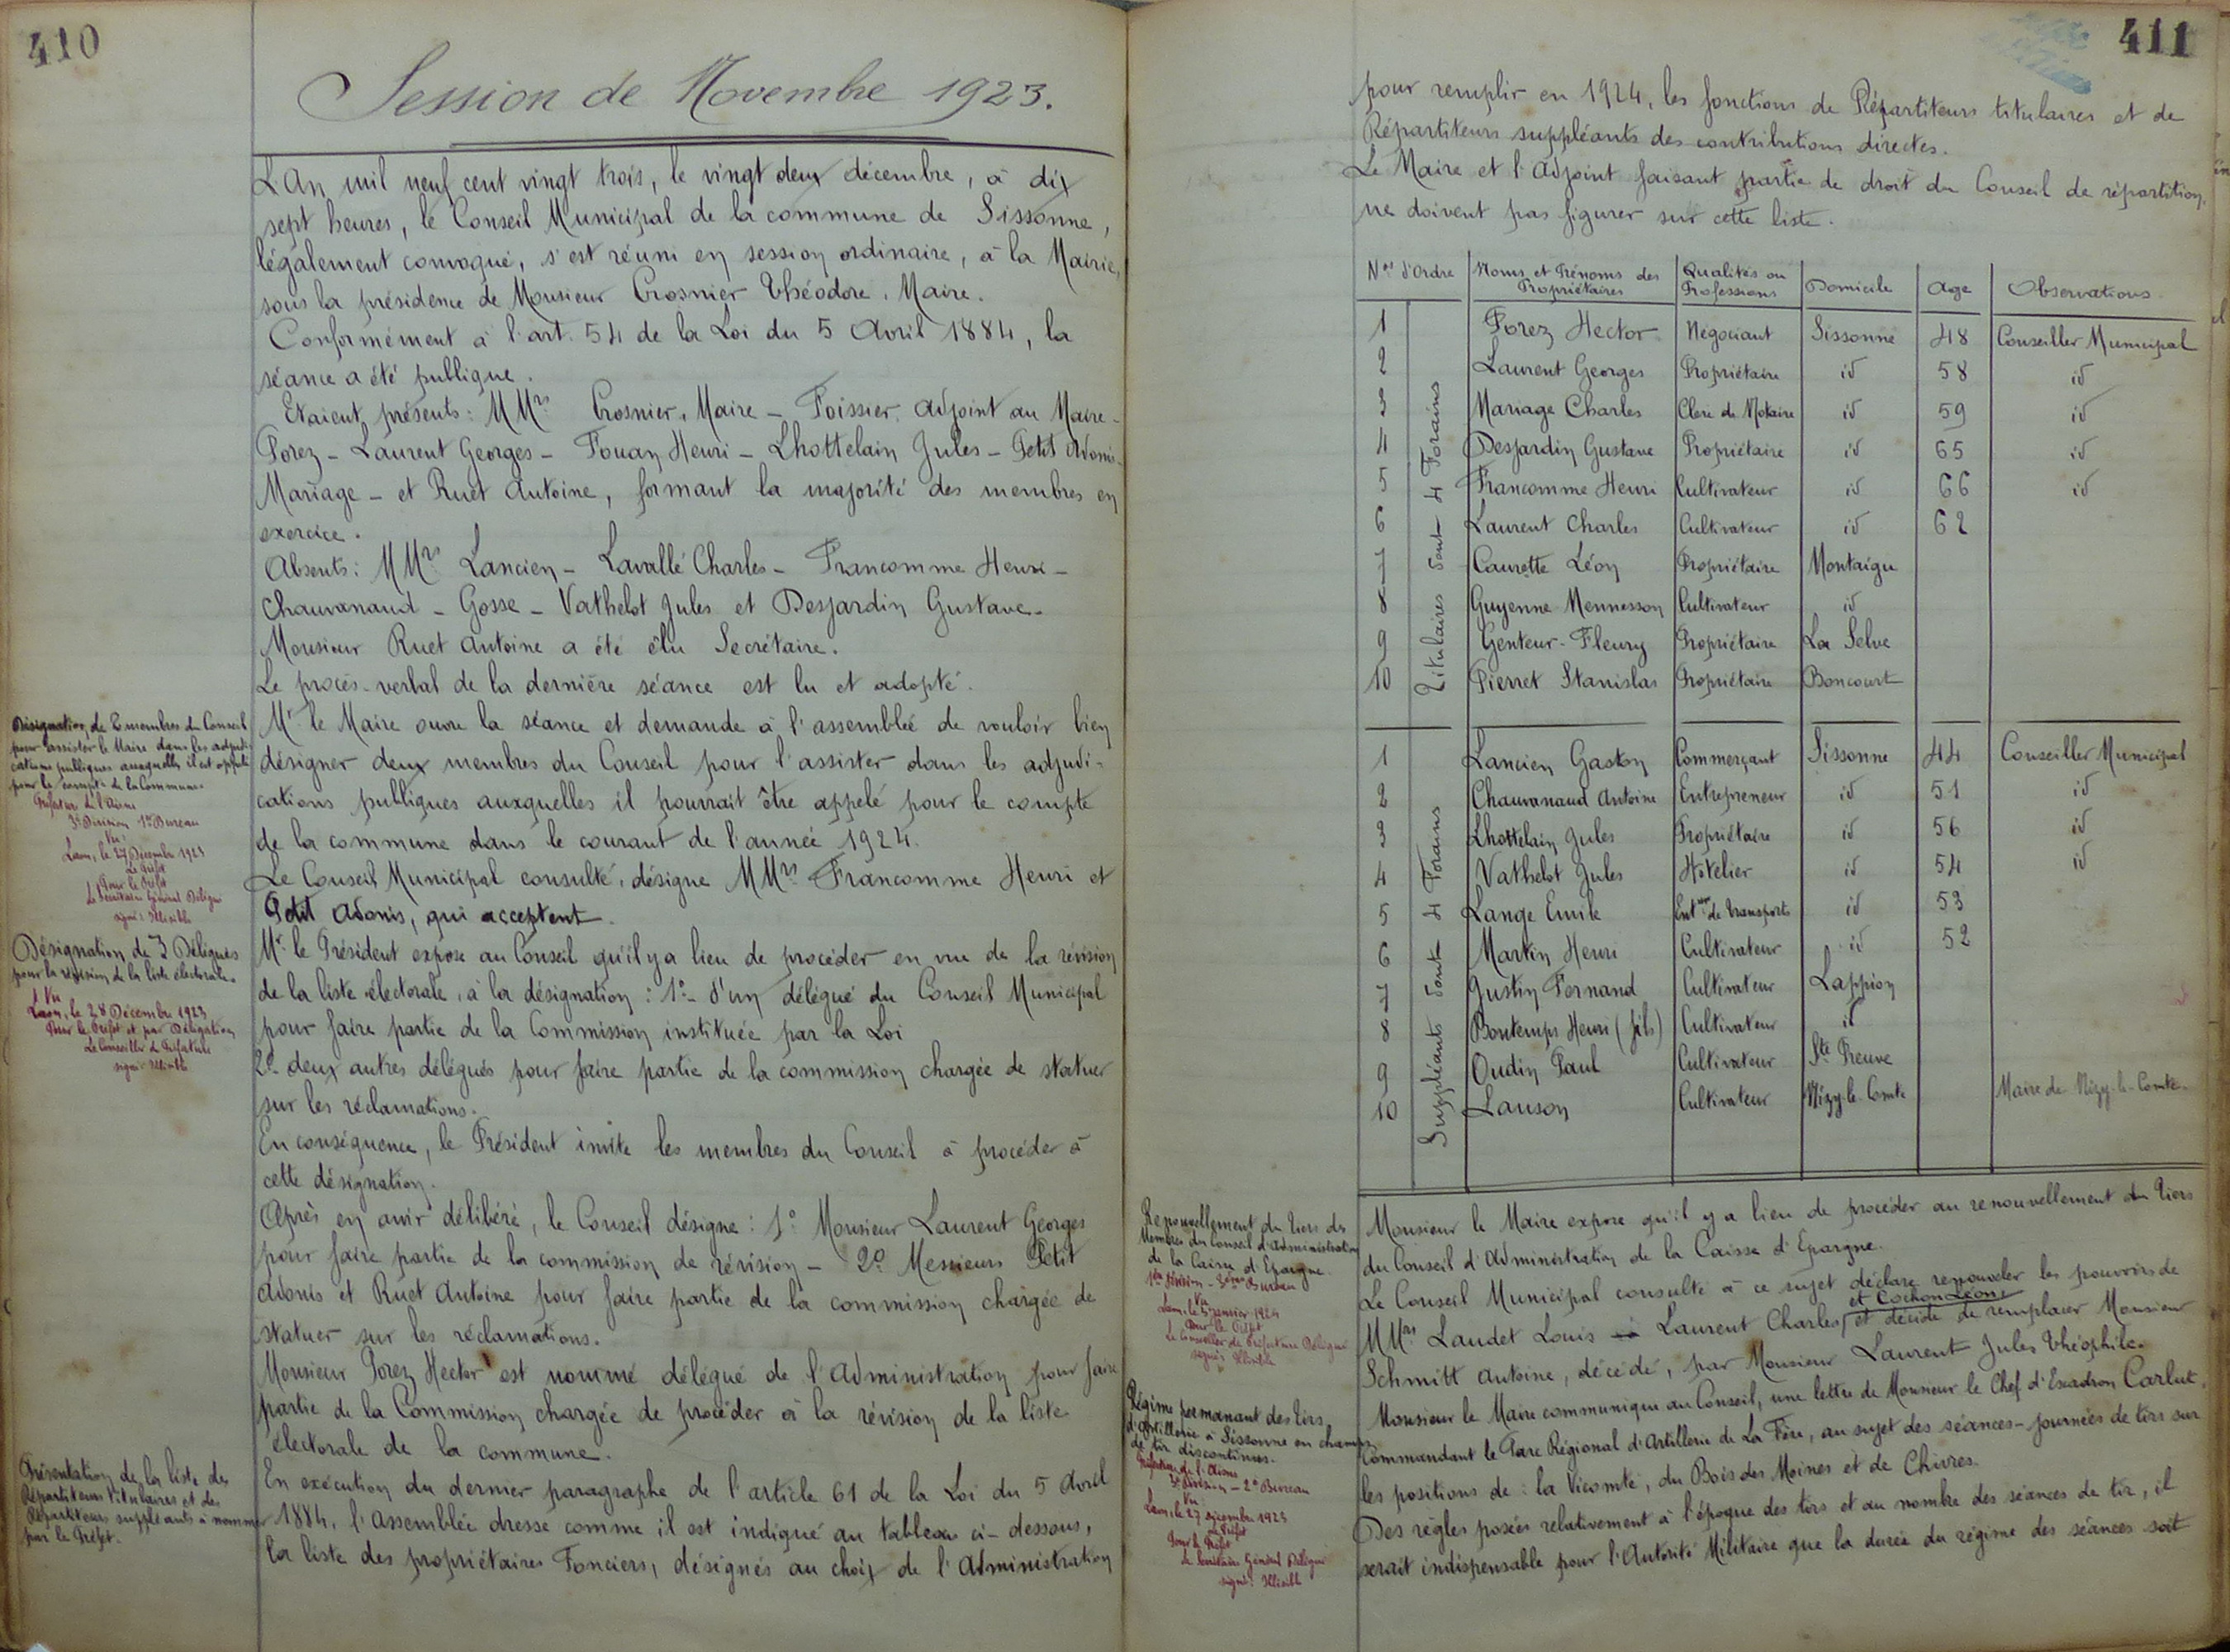 410
Session de Novembre 1923.
L'An mil neuf cent vingt trois, le vingt deux décembre, à dix
sept heures, le Conseil Municipal de la commune de Sissonne,
légalement convoqué, s'est réuni en session ordinaire, à la Mairie,
sous la présidence de Monsieur Crosnier Théodore, Maire.
Conformément à l'art. 54 de la Loi du 5 Avril 1884, la
séance a été publique.
Etaient présents: MMrs Crosnier, Maire - Foissier, Adjoint au Maire -
Porez - Laurent Georges - Fouan Henri - Lhottelain Jules - Petit Adonis -
Mariage - et Ruet Antoine, formant la majorité des membres en
exercice.
Absents: MMrs Lancien - Lavallé Charles - Francomme Henri -
Chauvanaud - Gosse - Vathelot Jules et Desjardin Gustave.
Monsieur Ruet Antoine a été élu Secrétaire.
Le procès-verbal de la dernière séance est lu et adopté.
Désignation de 2 membres du Conseil
pour assister le Maire dans les adjudi-
cations publiques auxquelles il est appelé
pour le compte de la Commune.
Préfecture de l'Aisne
3e Division 1er Bureau
Vu:
Laon, le 27 Décembre 1923
Le Préfet
Pour le Préfet
Le Secrétaire Général Délégué
signé: Illisible
Mr le Maire ouvre la séance et demande à l'assemblée de vouloir bien
désigner deux membres du Conseil pour l'assister dans les adjudi-
cations publiques auxquelles il pourrait être appelé pour le compte
de la commune dans le courant de l'année 1924.
Le Conseil Municipal consulté, désigne MMrs Francomme Henri et
Petit Adonis, qui acceptent.
Désignation de 3 Délégués
pour la révision de la liste électorale.
Vu
Laon, le 28 Décembre 1923
Pour le Préfet et par Délégation
Le Conseiller de Préfecture
signé: Illisible
Mr le Président expose au Conseil qu'il y a lieu de procéder en vue de la révision
de la liste électorale, à la désignation: 1°- d'un délégué du Conseil Municipal
pour faire partie de la Commission instituée par la Loi
2° deux autres délégués pour faire partie de la commission chargée de statuer
sur les réclamations.
En conséquence, le Président invite les membres du Conseil à procéder à
cette désignation.
Après en avoir délibéré, le Conseil désigne: 1° Monsieur Laurent Georges
pour faire partie de la commission de révision - 2° Messieurs Petit
Adonis et Ruet Antoine pour faire partie de la commission chargée de
statuer sur les réclamations.
Monsieur Porez Hector est nommé délégué de l'Administration pour faire
partie de la Commission chargée de procéder à la révision de la liste
électorale de la commune.
Présentation de la liste des
Répartiteurs Titulaires et des
Répartiteurs suppléants à nommer
par le Préfet.
En exécution du dernier paragraphe de l'article 61 de la Loi du 5 Avril
1884, l'assemblée dresse comme il est indiqué au tableau ci-dessous,
la liste des propriétaires Fonciers, désignés au choix de l'Administration
411
pour remplir en 1924, les fonctions de Répartiteurs titulaires et de
Répartiteurs suppléants des contributions directes.
Le Maire et l'Adjoint faisant partie de droit du Conseil de répartition,
ne doivent pas figurer sur cette liste.
Nos d'Ordre Noms et Prénoms des Propriétaires Qualités ou Professions Domicile Age Observations
Titulaires dont 4 Forains
1 Porez Hector Négociant Sissonne 48 Conseiller Municipal
2 Laurent Georges Propriétaire id 58 id
3 Mariage Charles Clerc de Notaire id 59 id
4 Desjardin Gustave Propriétaire id 65 id
5 Francomme Henri Cultivateur id 66 id
6 Laurent Charles Cultivateur id 62
7 Caurette Léon Propriétaire Montaigu
8 Guyenne Mennesson Cultivateur id
9 Genteur-Fleury Propriétaire La Selve
10 Pierret Stanislas Propriétaire Boncourt
Suppléants dont 4 Forains
1 Lancien Gaston Commerçant Sissonne 44 Conseiller Municipal
2 Chauvanaud Antoine Entrepreneur id 51 id
3 Lhottelain Jules Propriétaire id 56 id
4 Vathelot Jules Hôtelier id 54 id
5 Lange Emile Entneur de Transports id 53
6 Martin Henri Cultivateur id 52
7 Justin Fernand Cultivateur Lappion
8 Bontemps Henri (fils) Cultivateur id
9 Oudin Paul Cultivateur Ste Preuve
10 Lanson Cultivateur Nizy-le-Comte Maire de Nizy-le-Comte.
Renouvellement du tiers des
Membres du Conseil d'Administration
de la Caisse d'Epargne.
1ère Division - 3ème Bureau
Vu
Laon, le 5 Janvier 1924
Pour le Préfet
Le Conseiller de Préfecture Délégué
signé: Illisible
Monsieur le Maire expose qu'il y a lieu de procéder au renouvellement du Tiers
du Conseil d'Administration de la Caisse d'Epargne.
Le Conseil Municipal consulté à ce sujet déclare renouveler les pouvoirs de
et Cochon Léon
MMrs Laudet Louis Laurent Charles, et décide de remplacer Monsieur
Schmitt Antoine, décédé, par Monsieur Laurent Jules Théophile.
Régime permanant des tirs
d'Artillerie à Sissonne en champs
de tir discontinus.
Préfecture de l'Aisne
3e Division - 2e Bureau
Vu:
Laon, le 27 Décembre 1923
Le Préfet
Pour le Préfet
Le Secrétaire Général Délégué
signé: Illisible
Monsieur le Maire communique au Conseil, une lettre de Monsieur le Chef d'Escadron Carlut,
Commandant le Parc Régional d'Artillerie de La Fère, au sujet des séances-journées de tirs sur
les positions de: la Vicomte, du Bois des Moines et de Chivres.
Des règles posées relativement à l'époque des tirs et au nombre des séances de tir, il
serait indispensable pour l'Autorité Militaire que la durée du régime des séances soit